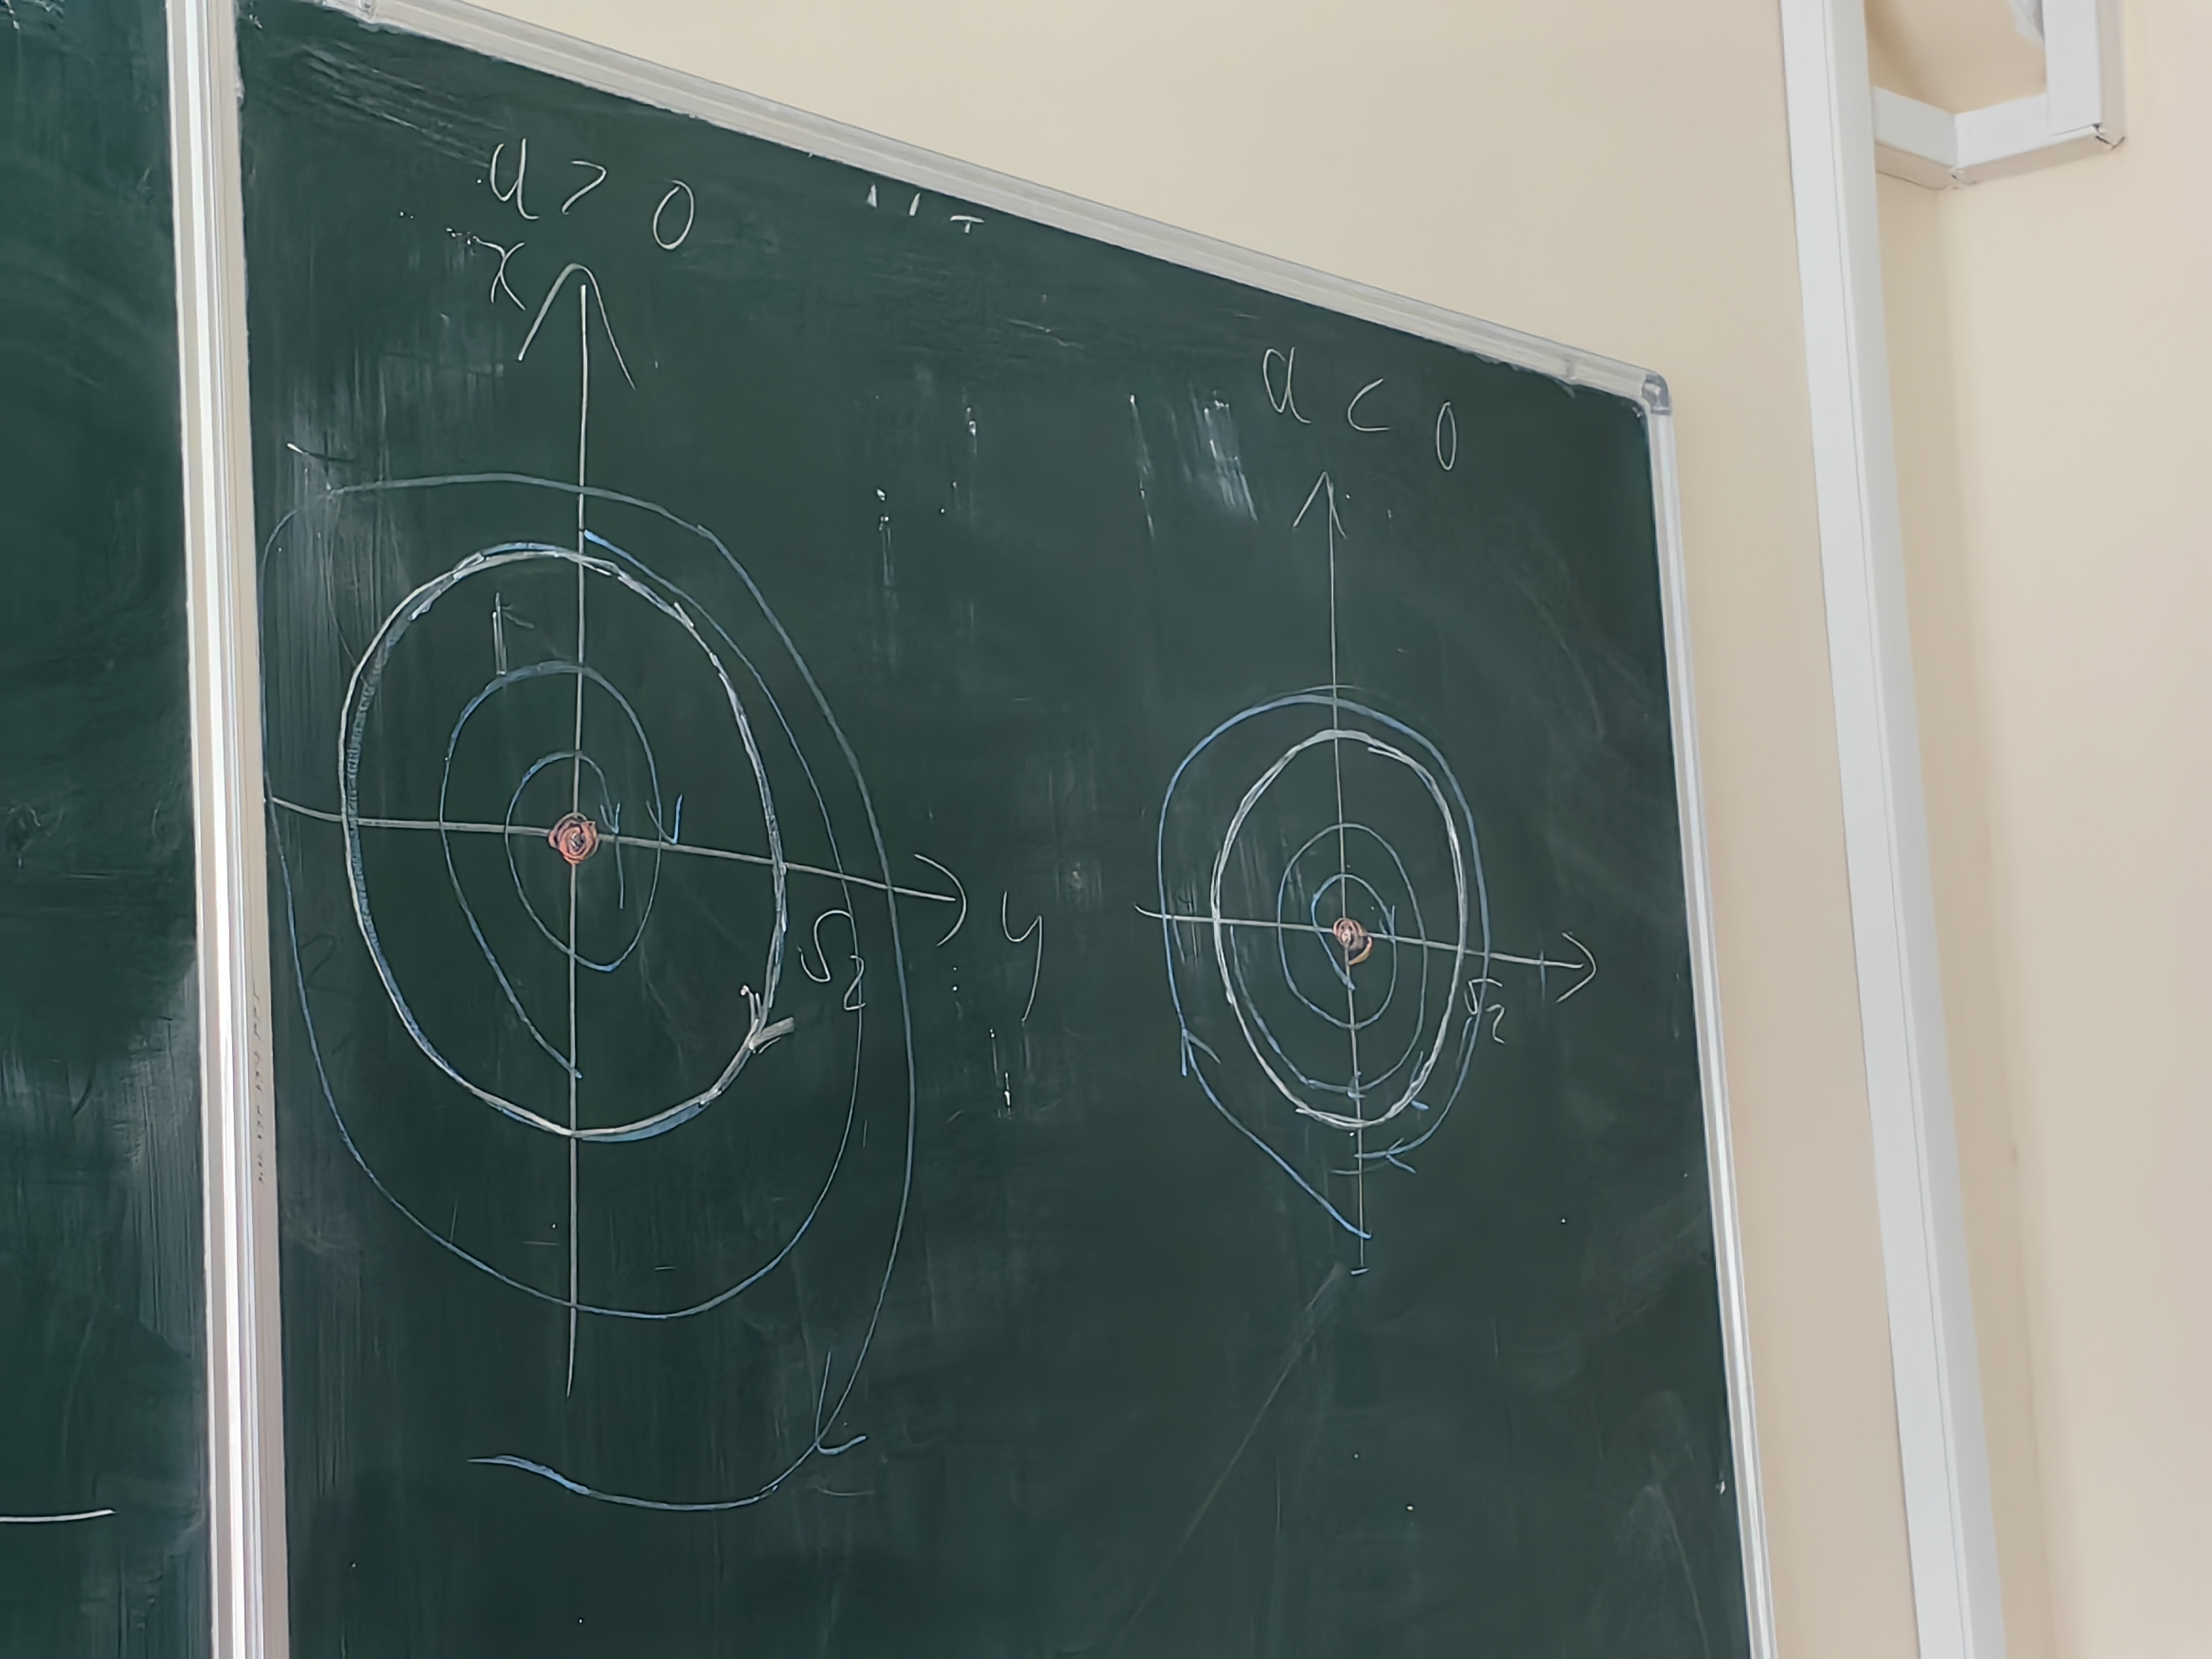 a > 0
x
y
√2
a < 0
√2